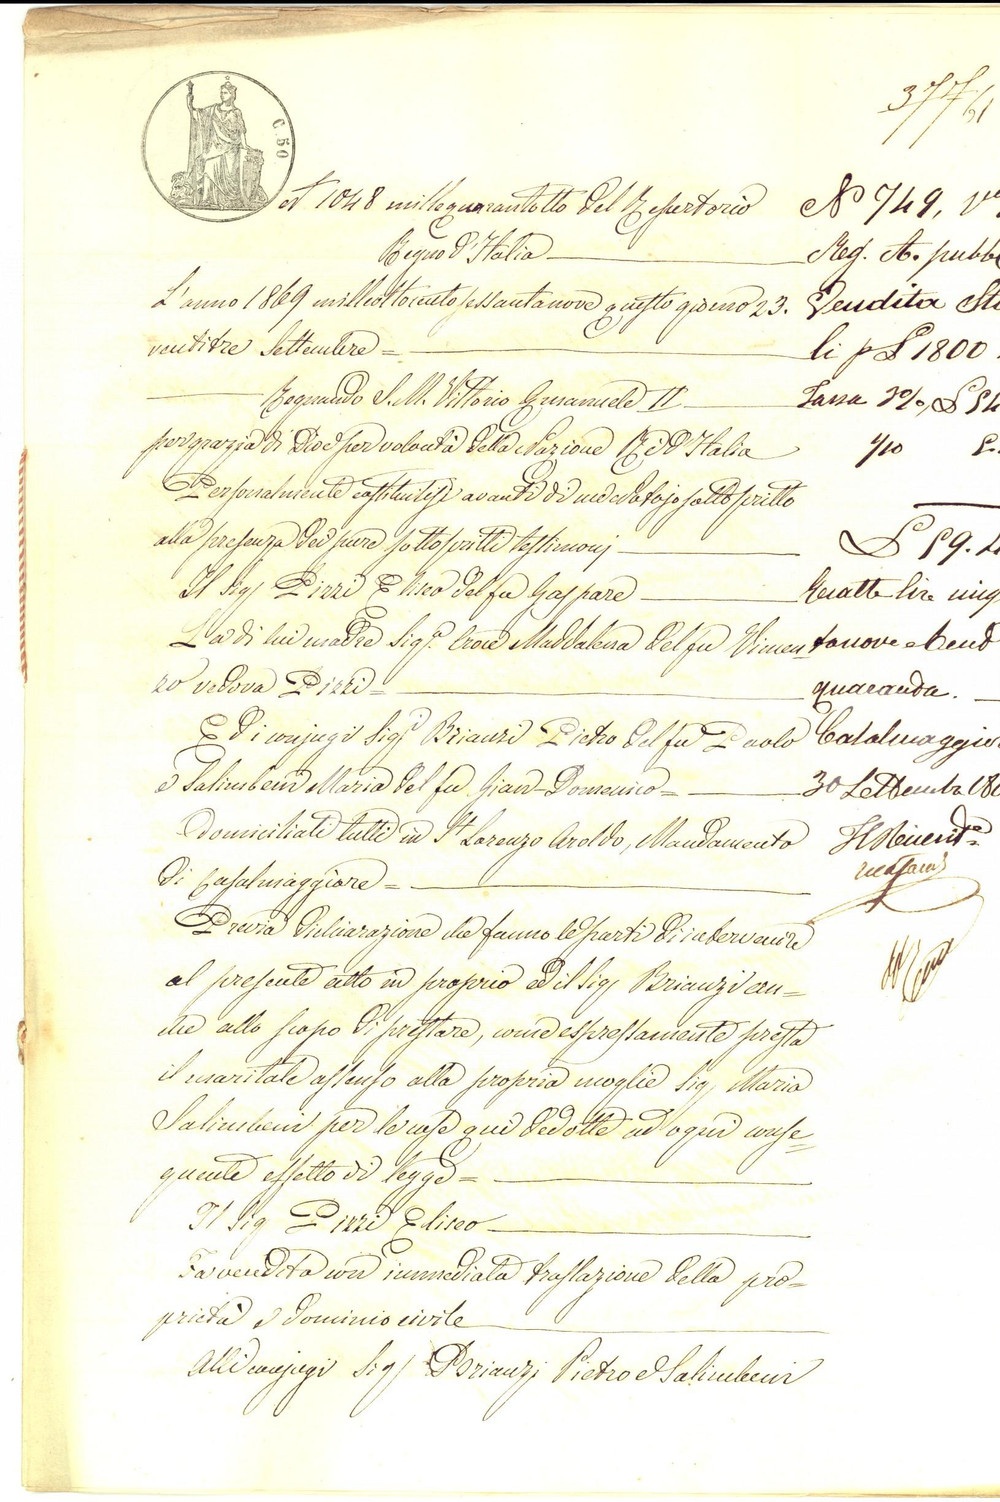 377/61
C. 50
N 1048 millequarantotto del Repertorio
Regno d'Italia
L'anno 1869 milleottocentosessantanove questo giorno 23.
ventitre Settembre =
Regnando S. M. Vittorio Emanuele II
per grazia di Dio e per volontà della Nazione Re d'Italia
Personalmente costituitisi avanti di me Notajo sottoscritto
alla presenza dei pure sottoscritti testimonj
Il Sig Pizzi Eliseo del fu Gaspare
La di lui madre Sig.ª Maddalena del fu Vincen=
zo vedova Pizzi =
E di conjugi Sig.ri Brianzi Pietro del fu Paolo
e Salimbeni Maria del fu Gian-Domenico =
Domiciliati tutti in S. Lorenzo Aroldo, Mandamento
di Casalmaggiore =
Previa dichiarazione che fanno le parti di intervenire
al presente atto in proprio ed il Sig Brianzi an=
che allo scopo di prestare, come espressamente presta
il maritale assenso alla propria moglie Sig Maria
Salimbeni per le cose qui dedotte ad ogni conse=
guente effetto di legge =
Il Sig Pizzi Eliseo
Fa vendita con immediata traslazione della pro=
prietà e dominio civile
Alli conjugi Sig Brianzi Pietro e Salimbeni
N 749, V
Reg. A. pubb
Vendita
li p £ 1800
Tassa 3%, £ 54
1/10 £.
£ 59. 4
Esatte lire cinq
tanove e cent
quaranda.
Casalmaggiore
30 Settembre 18
Il Ricevit.e